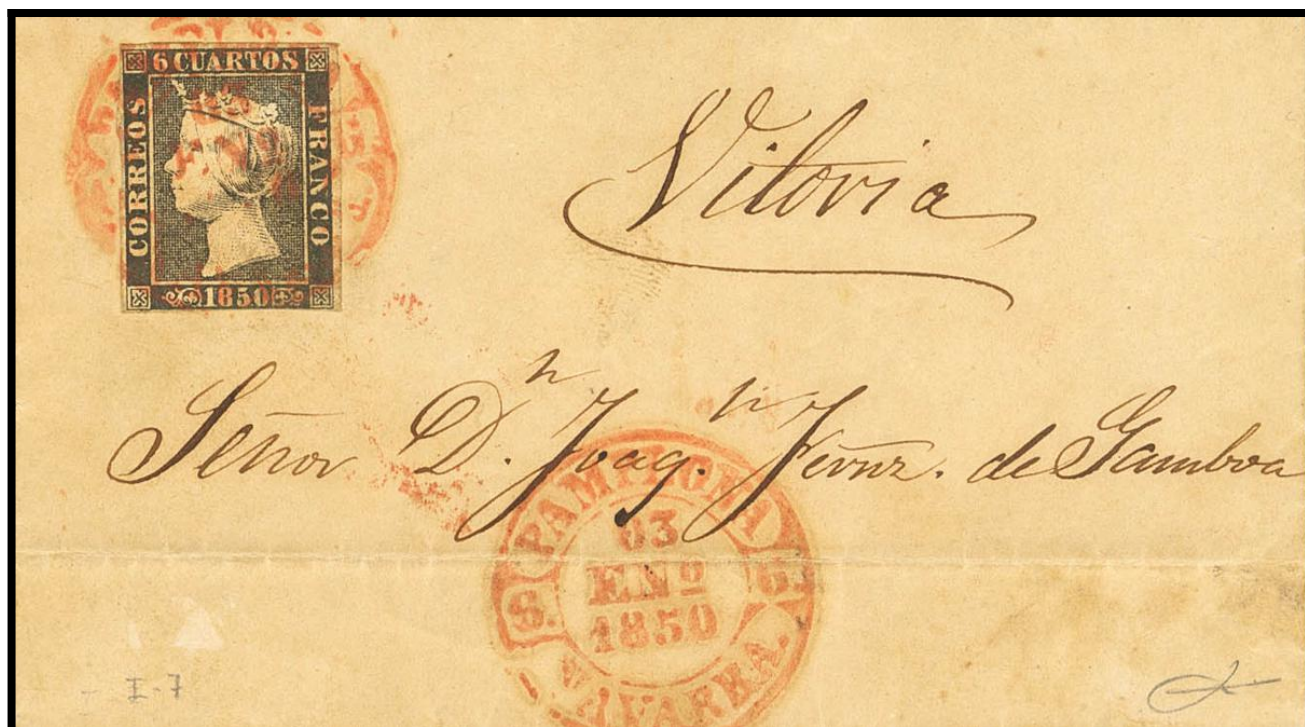 6 CUARTOS
CORREOS
FRANCO
1850
Vitoria
Señor D.n Joaq.n Fernz. de Gamboa
PAMPLONA
03
ENº
1850
S.
6.
NAVARRA.
I-7